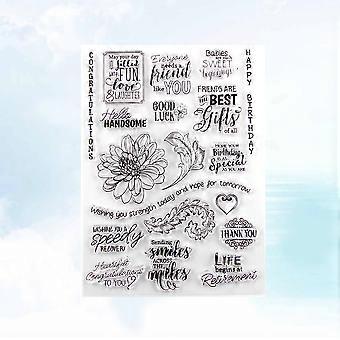 CONGRATULATIONS
May your day
is filled
with FUN
love
& LAUGHTER
Everyone
needs a
friend
like YOU
Babies
are such
SWEET
Beginnings
HAPPY BIRTHDAY
Hello
HANDSOME
GOOD
LUCK
FRIENDS ARE
THE BEST
Gifts
of all
HOPE YOUR
Birthday
IS AS
Special
AS YOU ARE
Wishing you strength today and hope for tomorrow
WISHING YOU A
speedy
RECOVERY
Sending
smiles
ACROSS
THE
miles
THANK YOU
Heartfelt
Congratulations
TO YOU
LIFE
begins at
Retirement